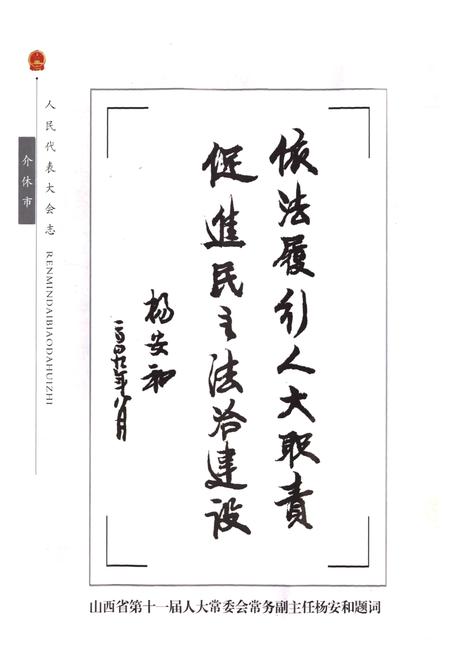 人民代表大会志 RENMINDAIBIAODAHUIZHI
介休市
依法履行人大职责
促进民主法治建设
杨安和
二〇〇九年八月
山西省第十一届人大常委会常务副主任杨安和题词